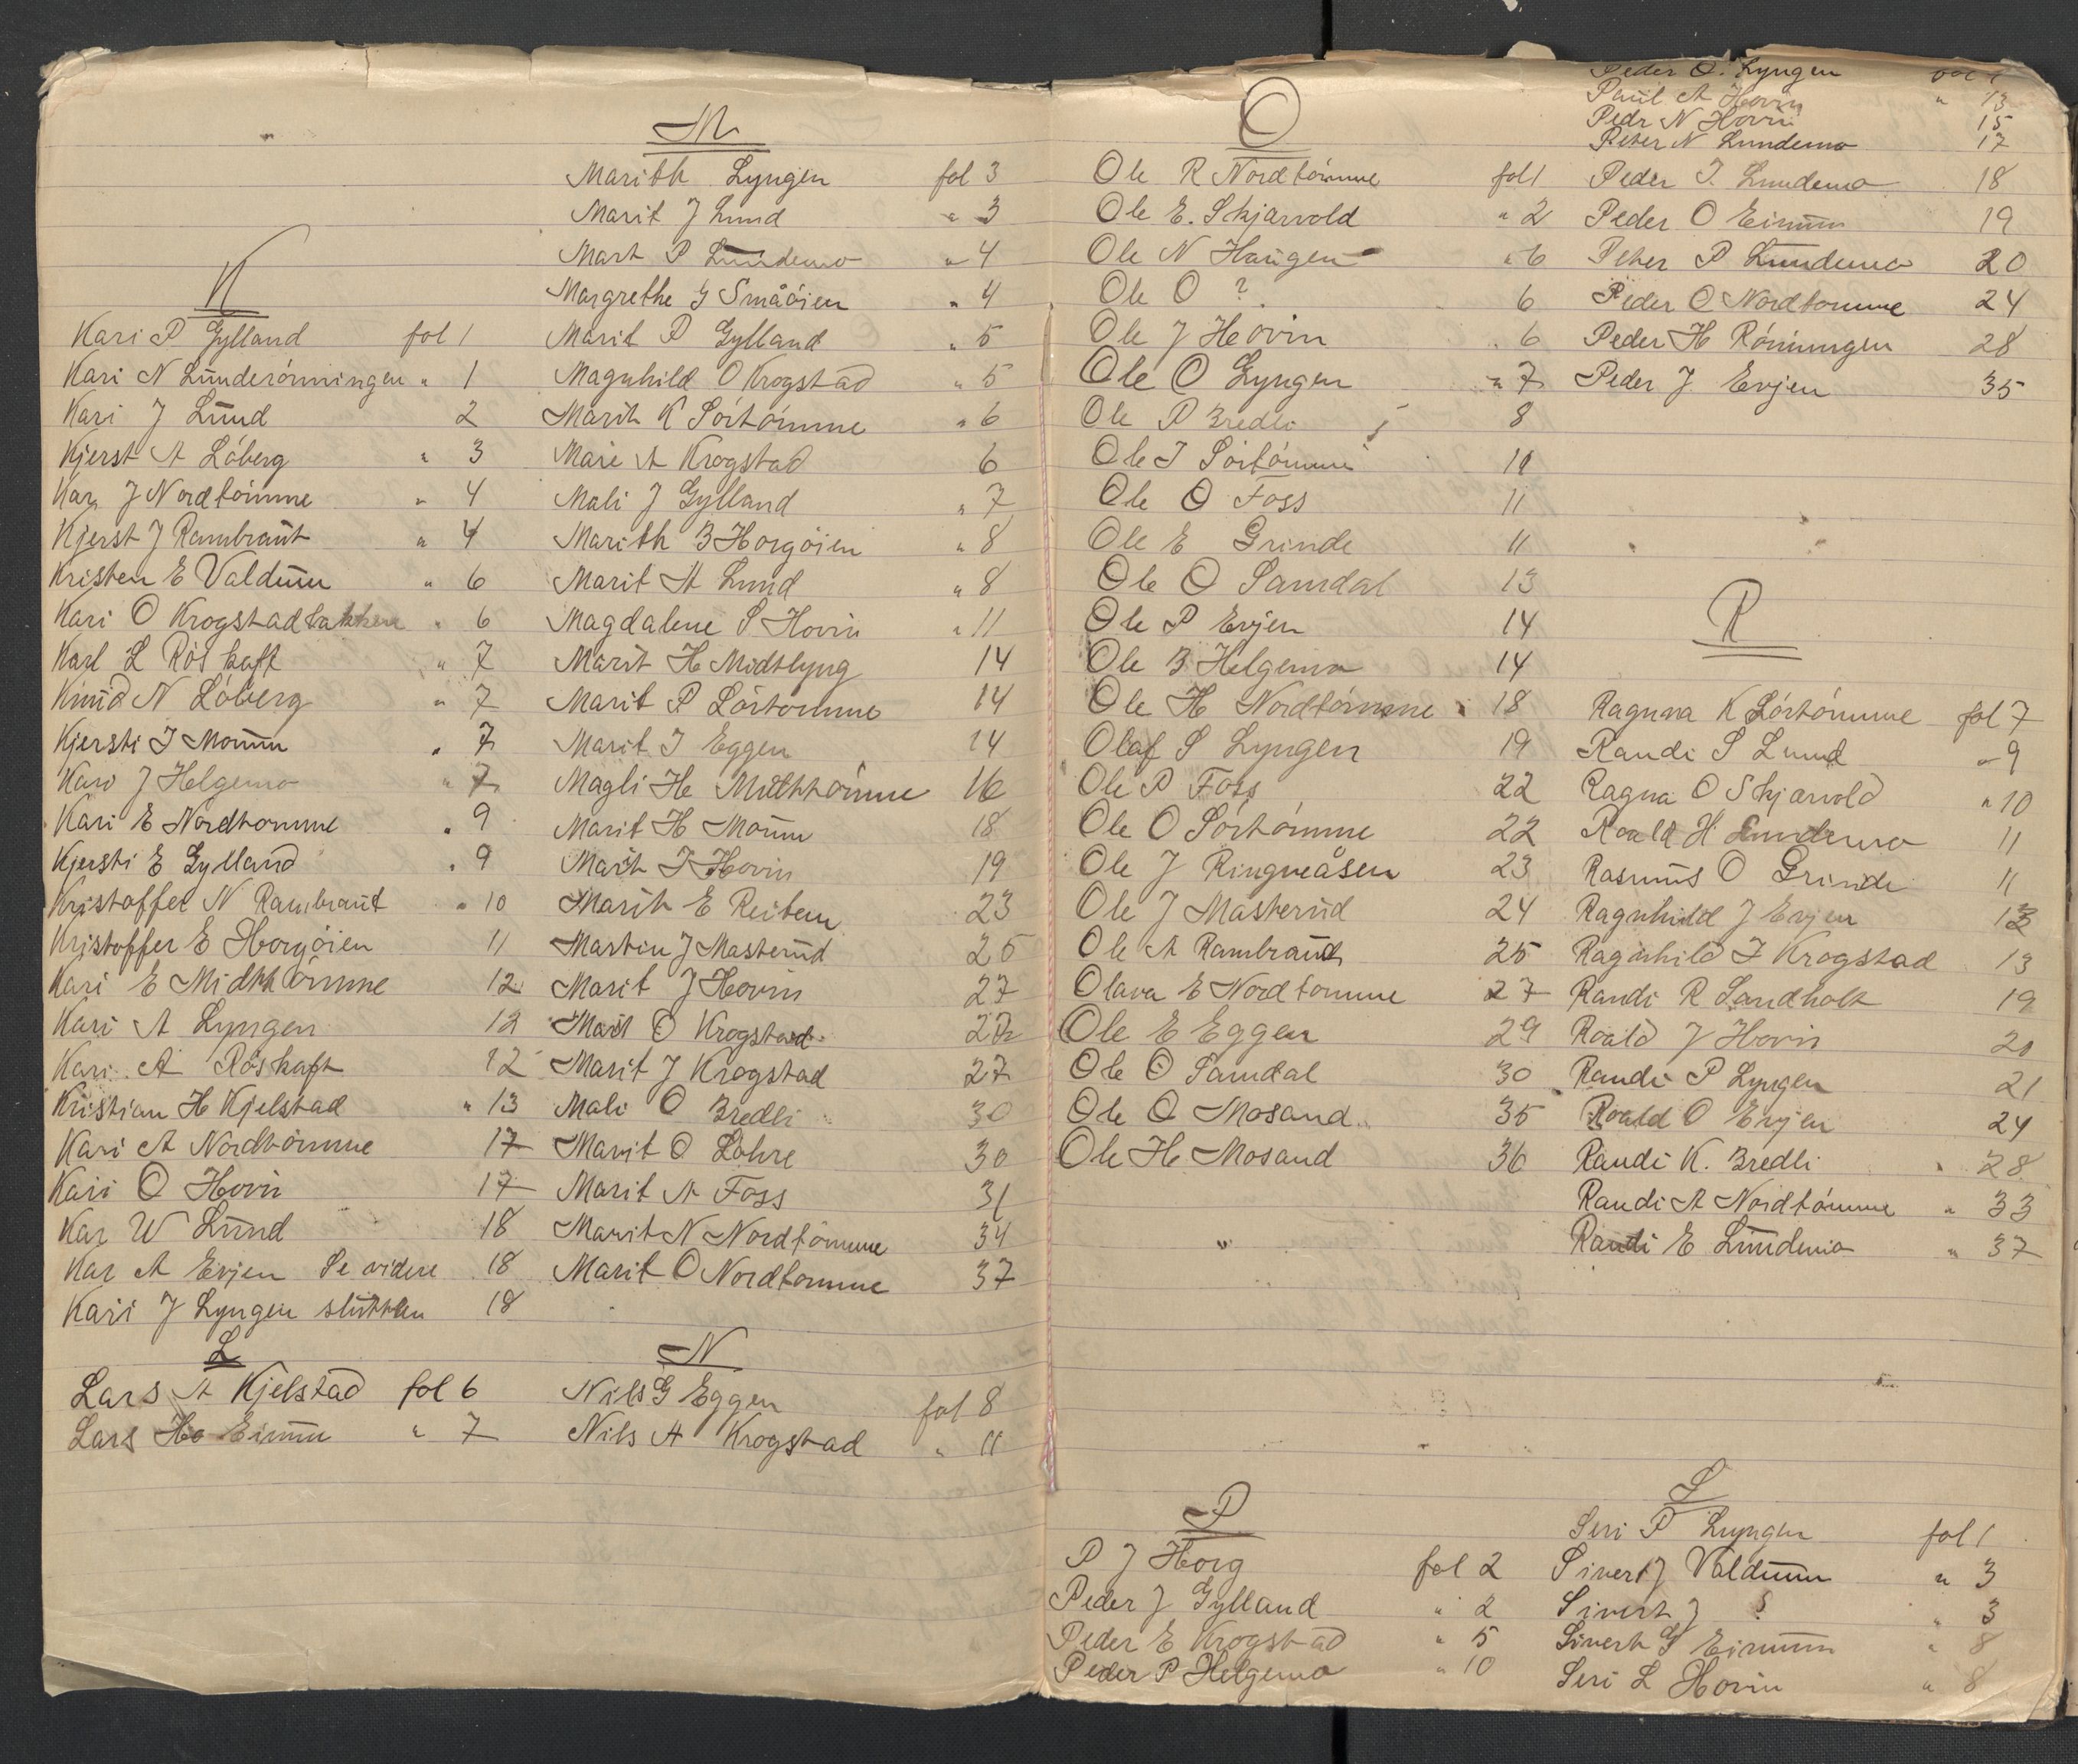 K
Kari P Gylland fol 1
Kari N Lunderönningen " 1
Kari J Lund 2
Kjerst A Löberg " 3
Kar J Nordtömme " 4
Kjerst J Rambraut " 4
Kristen E Valdum " 6
Kari O Krogstadbakken " 6
Karl L Röskaft " 7
Knud N Löberg " 7
Kjersti I Moum " 7
Kari J Helgemo " 7
Kari E Nordtomme " 9
Kjersti E Gylland " 9
Kristoffer N Rambraut " 10
Kristoffer E Horgöien 11
Kari E Midttömme 12
Kari A Lyngen 12
Kari A Röskaft 12
Kristian H Kjelstad " 13
Kari A Nordtömme 17
Kari O Hovin 17
Kar W Lund 18
Kar A Evjen Se videre 18
Kari J Lyngen slutten 18
L
Lars A Kjelstad fol 6
Lars H Eimun " 7
M
Marith Lyngen fol 3
Marit J Lund " 3
Mart P Lundemo " 4
Margrethe J Småöien " 4
Marit P Gylland " 5
Magnhild O Krogstad " 5
Marit K Sörtömme " 6
Marie A Krogstad 6
Mali J Gylland " 7
Marith B Horgöien " 8
Marit A Lund " 8
Magdalene S Hovin " 11
Marit H Midtlyng 14
Marit P Sörtomme 14
Marit I Eggen 14
Magli H Midttömme 16
Marit H Moum 18
Marit I Hovin 19
Marit E Reitem 23
Martin J Masterud 25
Marit J Hovin 27
Marit O Krogstad 27
Marit J Krogstad 27
Mali O Bredli 30
Marit O Löhre 30
Marit A Foss 31
Marit N Nordtömme 34
Marit O Nordtomme 37
N
Nils G Eggen fol 8
Nils A Krogstad " 11
O
Ole R Nordtömme fol 1
Ole E. Skjærvold " 2
Ole N Haugen " 6
Ole O ? 6
Ole J Hovin " 6
Ole O Lyngen " 7
Ole P Bredli 8
Ole I Sörtömme 10
Ole O Foss 11
Ole E Grinde 11
Ole O Samdal 13
Ole P Evjen 14
Ole B Helgemo 14
Ole H Nordtömme 18
Olaf S Lyngen 19
Ole P Foss 22
Ole O Sörtömme 22
Ole J Ringneåsen 23
Ole J Masterud 24
Ole A Rambraut 25
Olava E Nordtomme 27
Ole E Eggen 29
Ole O Samdal 30
Ole O Mosand 35
Ole H Mosand 36
P
P J Horg fol 2
Peder J Gylland " 2
Peder E Krogstad " 5
Peder P Helgemo " 10
Peder O. Lyngen fol 1
Paul A Hovin " 13
Pedr N Hovin 15
Peter N Lundemo 17
Peder I. Lundemo 18
Peder O Eimun 19
Peter P Lundemo 20
Peder O Nordtomme 24
Peder H Rönningen 28
Peder J Evjen 35
R
Ragnna K Sörtömme fol 7
Randi S Lund " 9
Ragna O Skjærvold " 10
Roald H Lundemo 11
Rasmus O Grinde 11
Ragnhild J Evjen 13
Ragnhild I Krogstad 13
Randi R Sandholt 19
Roald J Hovin 20
Randi P Lyngen 21
Roald O Evjen 24
Randi K. Bredli " 28
Randi A Nordtömme " 33
Randi E Lundemo " 37
S
Seri P Lyngen fol 1
Sivert J Valdum " 3
Sivert J ? " 3
Sivert G Eimun " 8
Seri L Hovin " 8